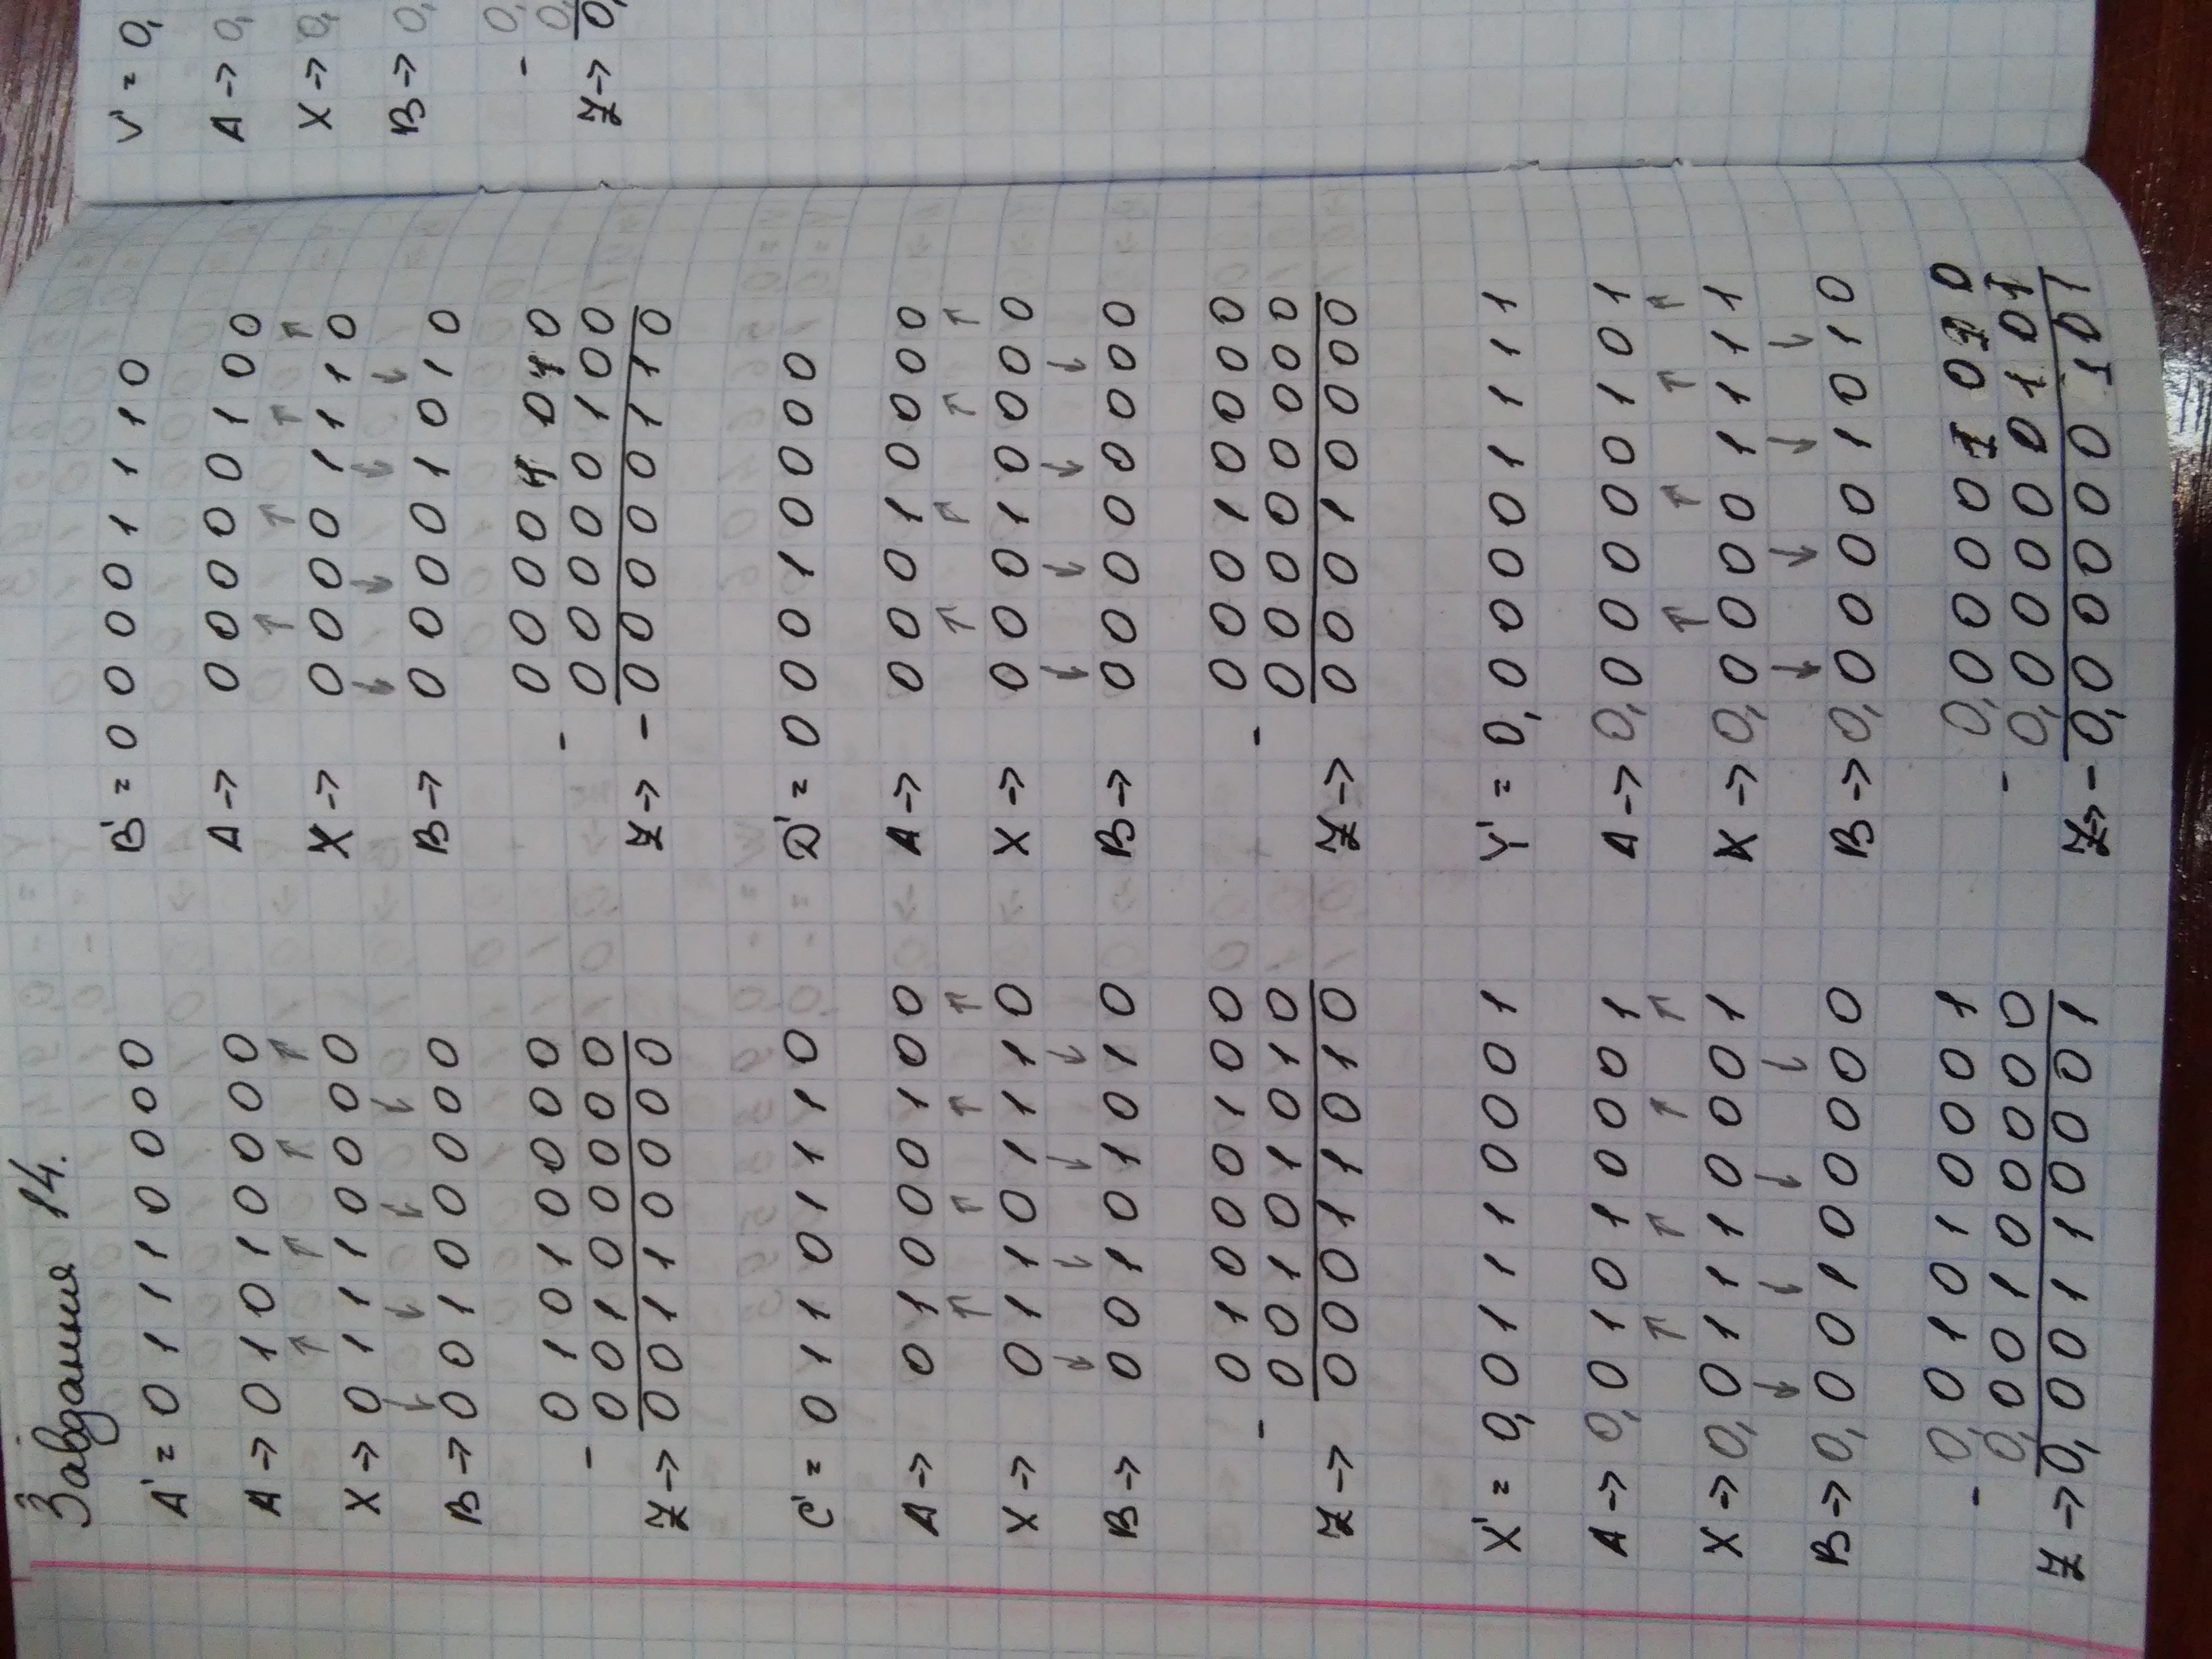 Завдання 14.
A' = 0 1 1 1 0 0 0 0
A → 0 1 0 1 0 0 0 0
X → 0 1 1 1 0 0 0 0
B → 0 0 1 0 0 0 0 0
- 0 1 0 1 0 0 0 0
0 0 1 0 0 0 0 0
Z → 0 0 1 1 0 0 0 0
B' = 0 0 0 0 1 1 1 0
A → 0 0 0 0 0 1 0 0
X → 0 0 0 0 1 1 1 0
B → 0 0 0 0 1 0 1 0
- 0 0 0 0 1 0 1 0
0 0 0 0 0 1 0 0
Z → - 0 0 0 0 0 1 1 0
C' = 0 1 1 0 1 1 1 0
A → 0 1 0 0 0 1 0 0
X → 0 1 1 0 1 1 1 0
B → 0 0 1 0 1 0 1 0
- 0 1 0 0 0 1 0 0
0 0 1 0 1 0 1 0
Z → 0 0 0 1 1 0 1 0
D' = 0 0 0 1 0 0 0 0
A → 0 0 0 1 0 0 0 0
X → 0 0 0 1 0 0 0 0
B → 0 0 0 0 0 0 0 0
- 0 0 0 1 0 0 0 0
0 0 0 0 0 0 0 0
Z → 0 0 0 1 0 0 0 0
X' = 0, 0 1 1 1 0 0 0 1
A → 0, 0 1 0 1 0 0 0 1
X → 0, 0 1 1 1 0 0 0 1
B → 0, 0 0 1 0 0 0 0 0
- 0, 0 1 0 1 0 0 0 1
0, 0 0 1 0 0 0 0 0
Z → 0, 0 0 1 1 0 0 0 1
Y' = 0, 0 0 0 0 1 1 1 1
A → 0, 0 0 0 0 0 1 0 1
X → 0, 0 0 0 0 1 1 1 1
B → 0, 0 0 0 0 1 0 1 0
- 0, 0 0 0 0 1 0 1 0
0, 0 0 0 0 0 1 0 1
Z → - 0, 0 0 0 0 0 1 0 1
V' = 0,
A → 0,
X → 0,
B → 0,
- 0,
0,
Z → 0,